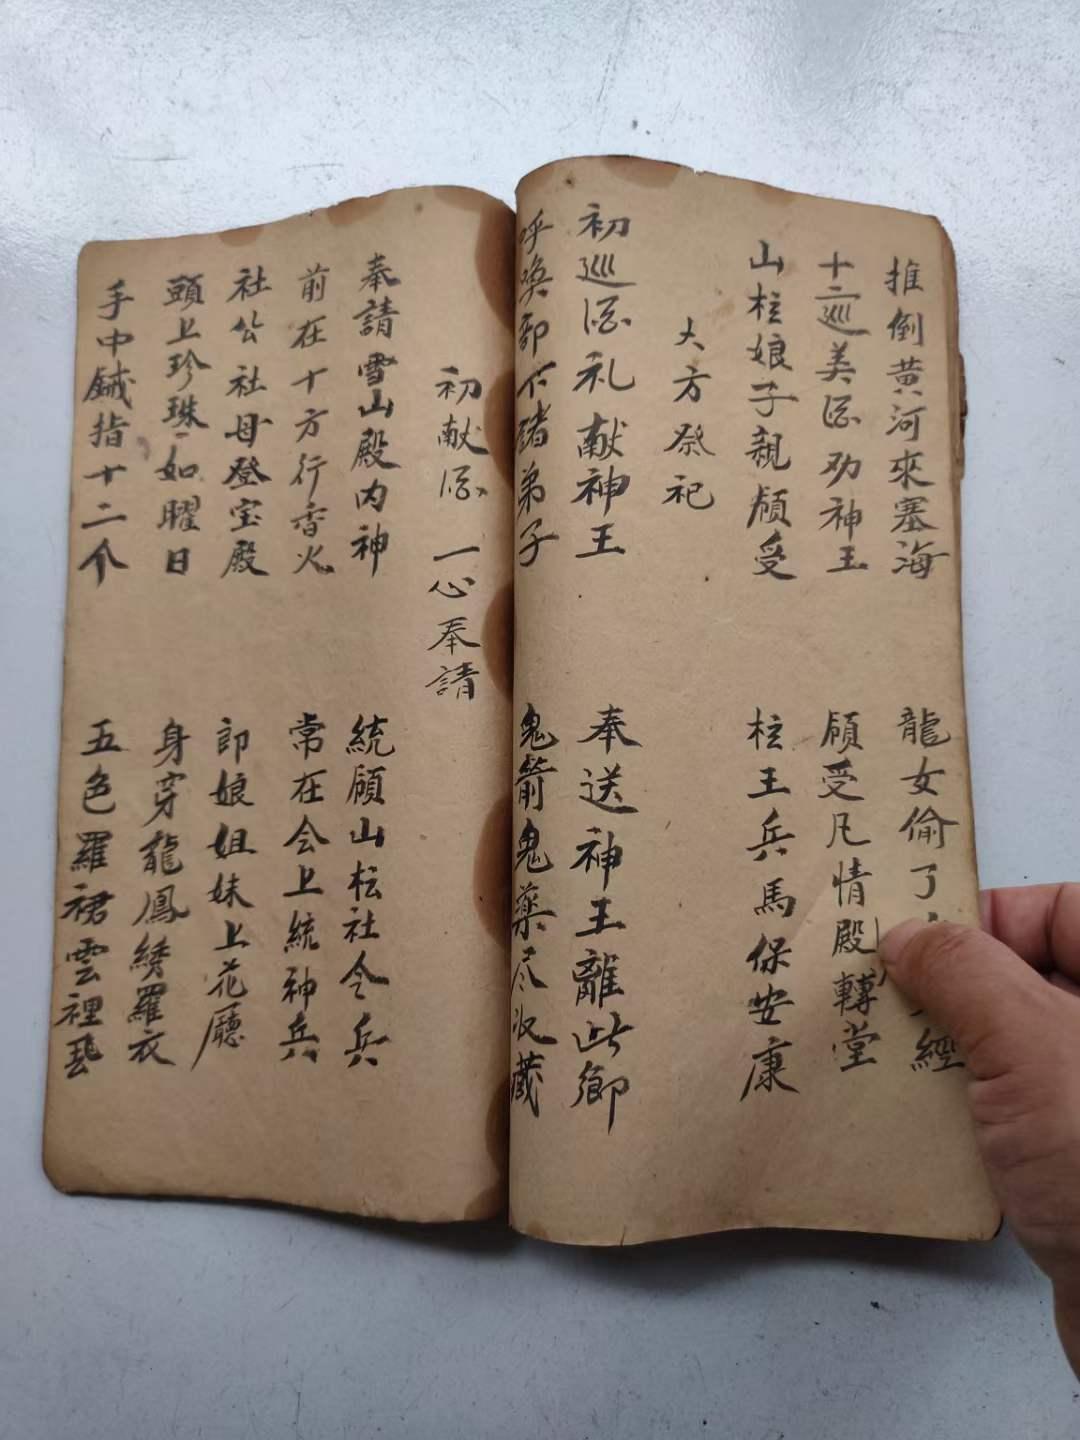 推倒黄河來塞海 龍女偷了 經
十二巡美 劝神王 領受凡情殿轉堂
山柱娘子親領受 柱王兵馬保安康
大方祭祀
初巡 礼献神王 奉送神王離此鄉
呼喚部下諸弟子 鬼箭鬼藥尽收藏
初献 一心奉請
奉請雪山殿内神 統領山枟社令兵
前在十方行香火 常在会上統神兵
社公社母登宝殿 郎娘姐妹上花廳
頭上珍珠如曜日 身穿龍鳳綉羅衣
手中鉞指十二个 五色羅裙雲裡